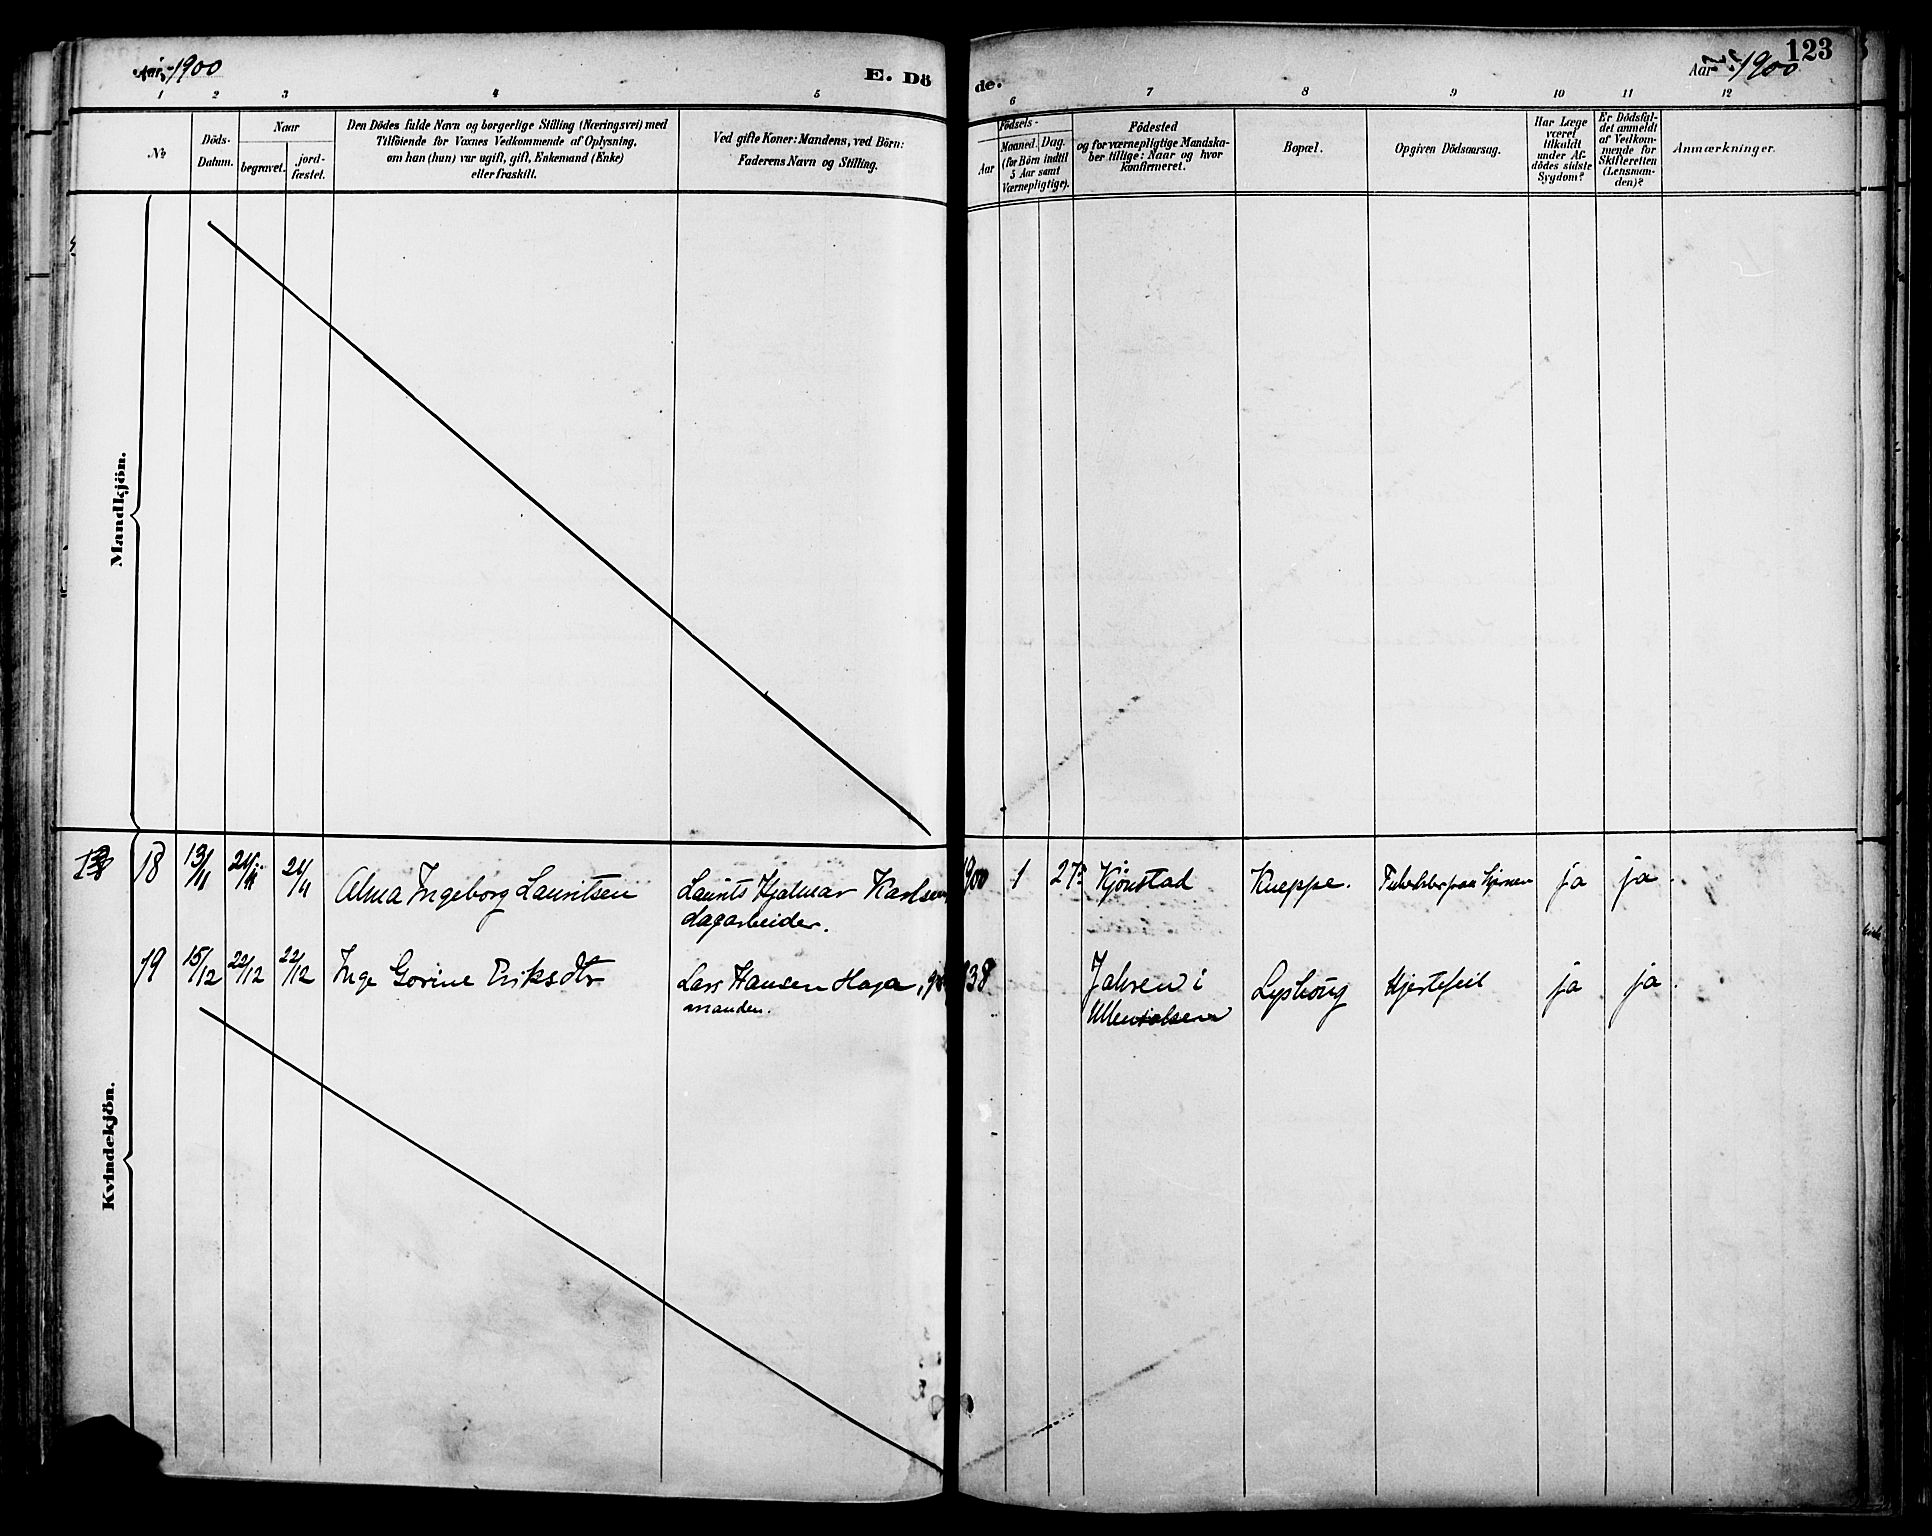 Aar 1900
E. Dö
de.
Aar 1900
123
1 2 3 4 5
6 7 8 9 10 11 12
No
Döds-
Datum.
Naar
begravet.
jord-
fæstet.
Den Dödes fulde Navn og borgerlige Stilling (Næringsvei) med
Tilföiende for Voxnes Vedkommende af Oplysning,
om han (hun) var ugift, gift, Enkemand (Enke)
eller fraskilt.
Ved gifte Koner: Mandens, ved Börn:
Faderens Navn og Stilling.
Födsels-
Aar
Maaned. Dag.
(for Börn indtil
5 Aar samt
Værnepligtige).
Födested
og for værnepligtige Mandska-
ber tillige: Naar og hvor
konfirmeret.
Bopæl.
Opgiven Dödsaarsag.
Har Læge
været
tilkaldt
under Af-
dödes sidste
Sygdom?
Er Dödsfal-
det anmeldt
af Vedkom-
mende for
Skifteretten
(Lensman-
den)?
Anmærkninger.
Mandkjön.
Kvindekjön.
18 13/11 21/11 21/11 Alma Ingeborg Lauritsen Laurits Hjalmar Karlsen 1900 1 27 Kjønstad Kneppe. ja ja.
dagarbeider.
19 15/12 22/12 22/12 Inge Gorine Eriksdtr Lars Hansen Haga, 838 Jahren i Lyshoug Hjertefeil ja ja.
manden.